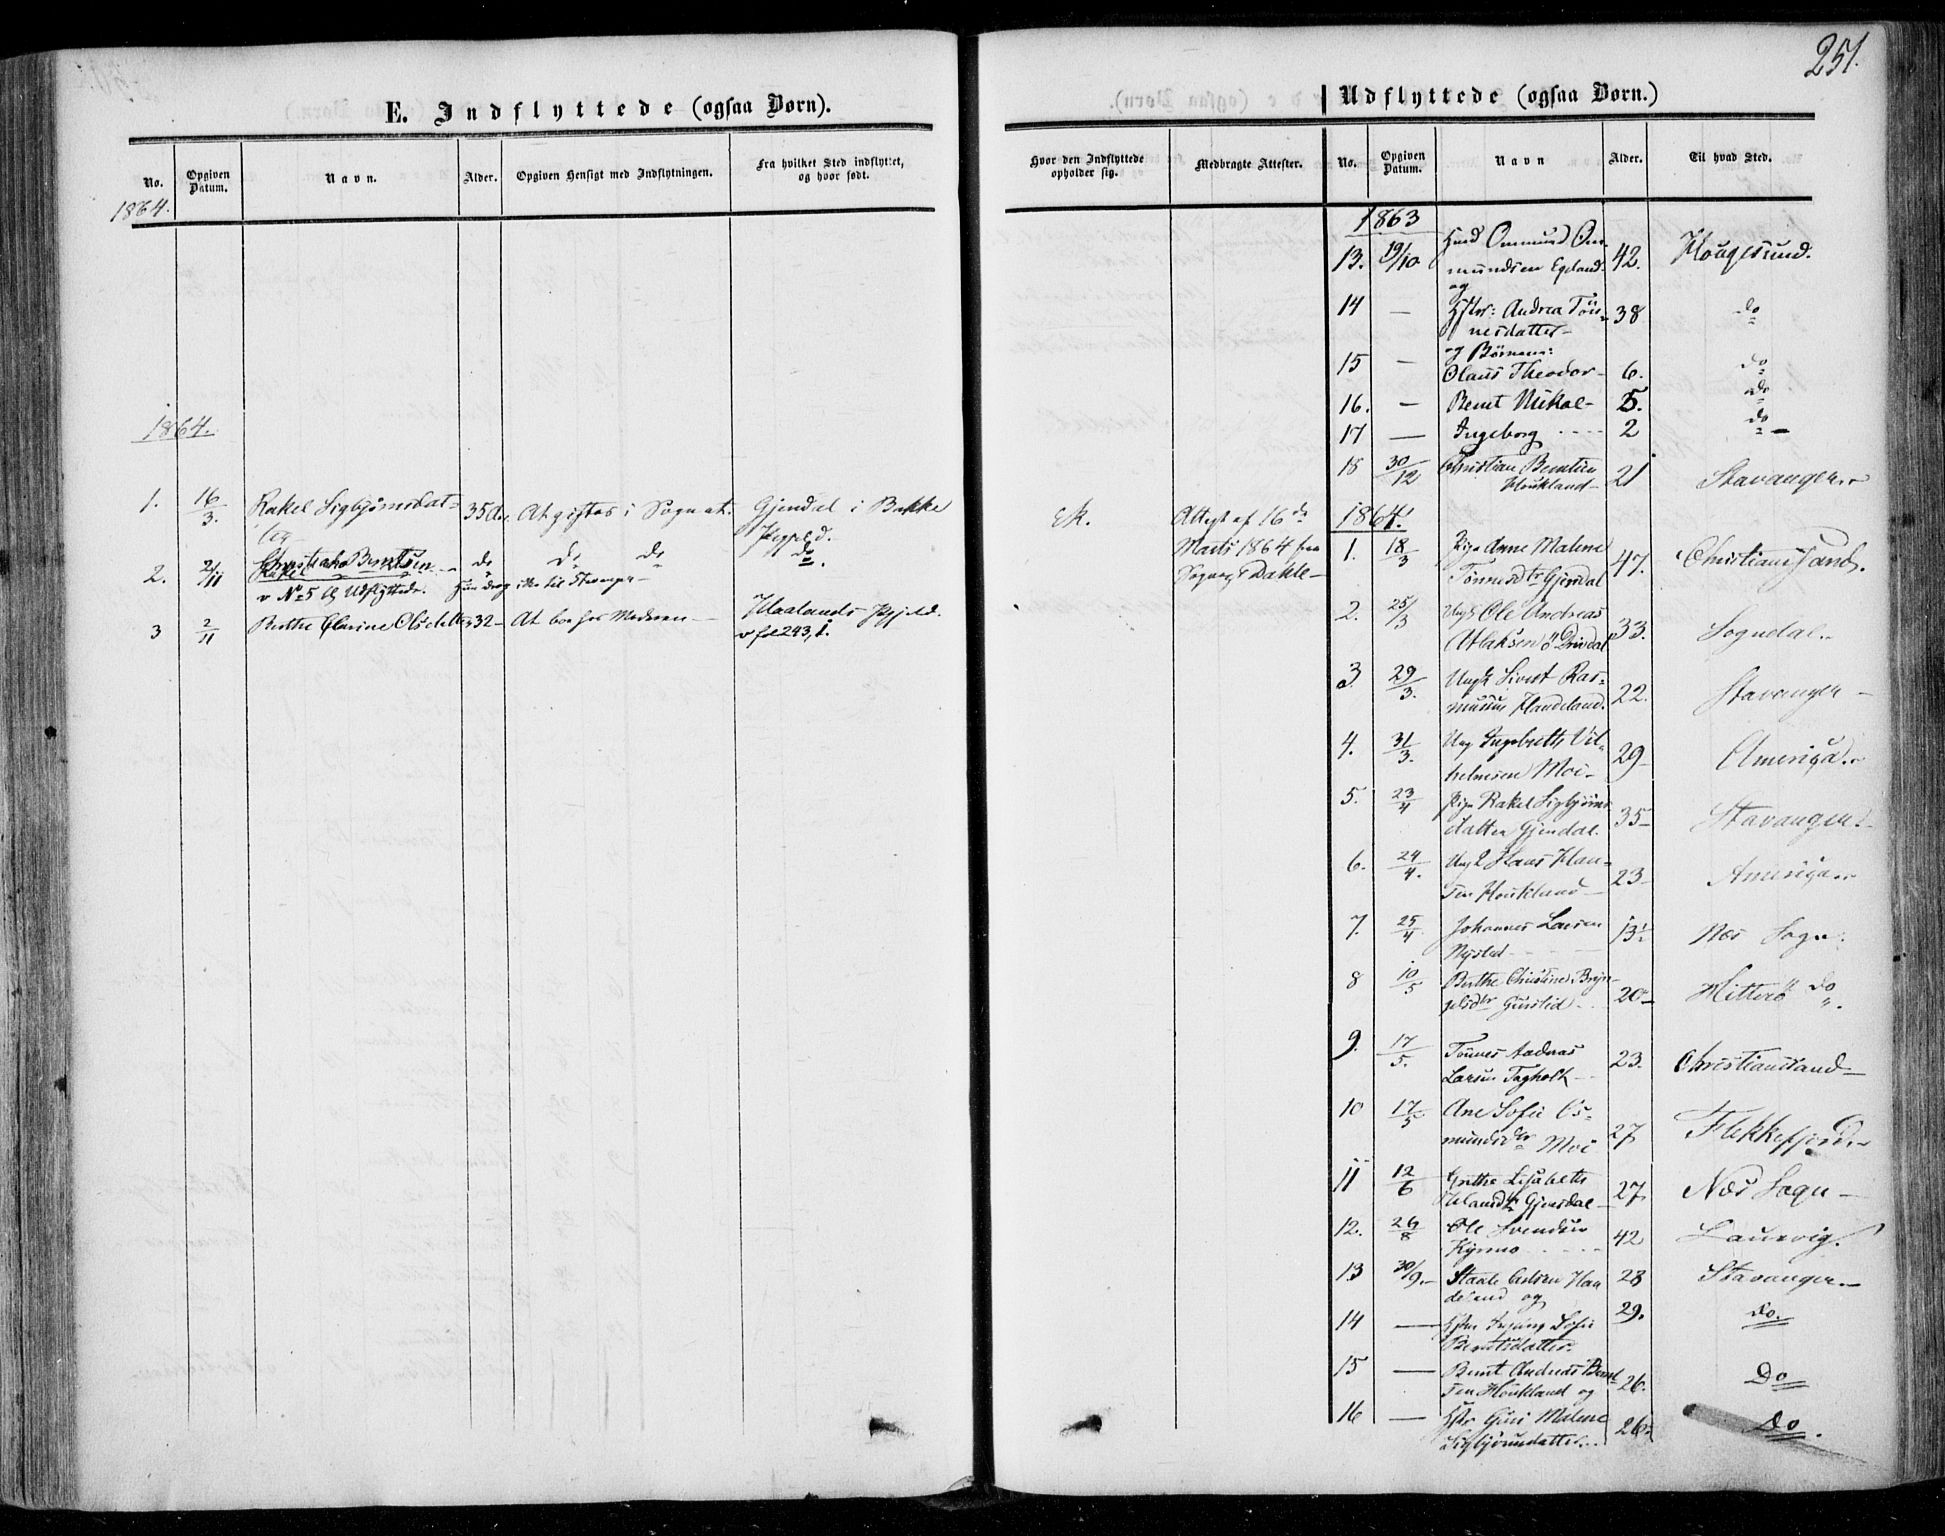 251.
E. Indflyttede (ogsaa Børn).
No.
Opgiven Datum.
Navn.
Alder.
Opgiven Hensigt med Indflytningen.
Fra hvilket Sted indflyttet, og hvor født.
1864.
1864.
1. 16/3. Rakel Sigbjørnsdat= 35 A. At giftes i Sognet. Gjendal i Bakke
Pgjeld.
2. 2/11 Christian Berntsen do do do do.
v No 5 Udflyttede. Hun drog ikke til Stavanger—
3 2/11 Berthe Olsdatter 32— At boe hos Moderen— Haalands Pgjeld.
v fol 243, 1.
Hvor den Indflyttede opholder sig.
Medbragte Attester.
Attest af 16de
Marts 1864 fra
Sogpr. Dahle—
Udflyttede (ogsaa Børn.)
No.
Opgiven Datum.
Navn
Alder.
Til hvad Sted.
1863
13. 19/10 Ommund Om=
mundsen Egeland 42. Haugesund.
og
14 — Hstr: Andrea Tön=
nesdatter— 38 do
og Börnene:
15 — Olaus Theodor— 6. do
16. — Bernt Mikal— 5. do
17 — Ingeborg 2 do—
18 30/12 Christian Berntsen
Houkland— 21 Stavanger
1864.
1. 18/3 Pige Anne Malene
Tönnesdtr Gjendal 47. Christiansand.
2. 25/3 Ungk Ole Andreas
Atlaksen Drivdal 33. Sogndal.
3. 29/3. Ungk Sivert Ras=
mussen Haadeland. 22. Stavanger—
4. 31/3. Ung Ingebreth Vil=
helmsen Moi— 29— Ameriga.
5. 23/4 Pige Rakel Sigbjörns
datter Gjendal. 35— Stavanger.
6. 24/4. Ungk Hans Han=
sen Houkland— 23— Ameriga
7. 25/4 Johannes Larsen
Nysted 13½ Næs Sogn.
8 10/5 Berthe Christine Bryn=
gelsdtr Gursted 20— Hitterö do
9. 17/5. Tönnes Andreas
Larsen Fogholt 23. Christiansand—
10 17/5 Ane Sofie Os=
mundsdtr Moi 27 Flekkefjord.
11 12/6 Grethe Lisabeth
Gjendal— 27 Næs Sogn—
12. 26/8 Ole Svendsen
42 Laurvig.
13 30/9.— Staale Haa
deland og 28 Stavanger.—
14 — Hstr Ingborg Sofie
Berntsdatter. 29. do.
15 — Bernt Andreas Bernt
sen Houkland og 26. Do
16 — Hstr Guri Malene
Sigbjörnsdatter 26. do.